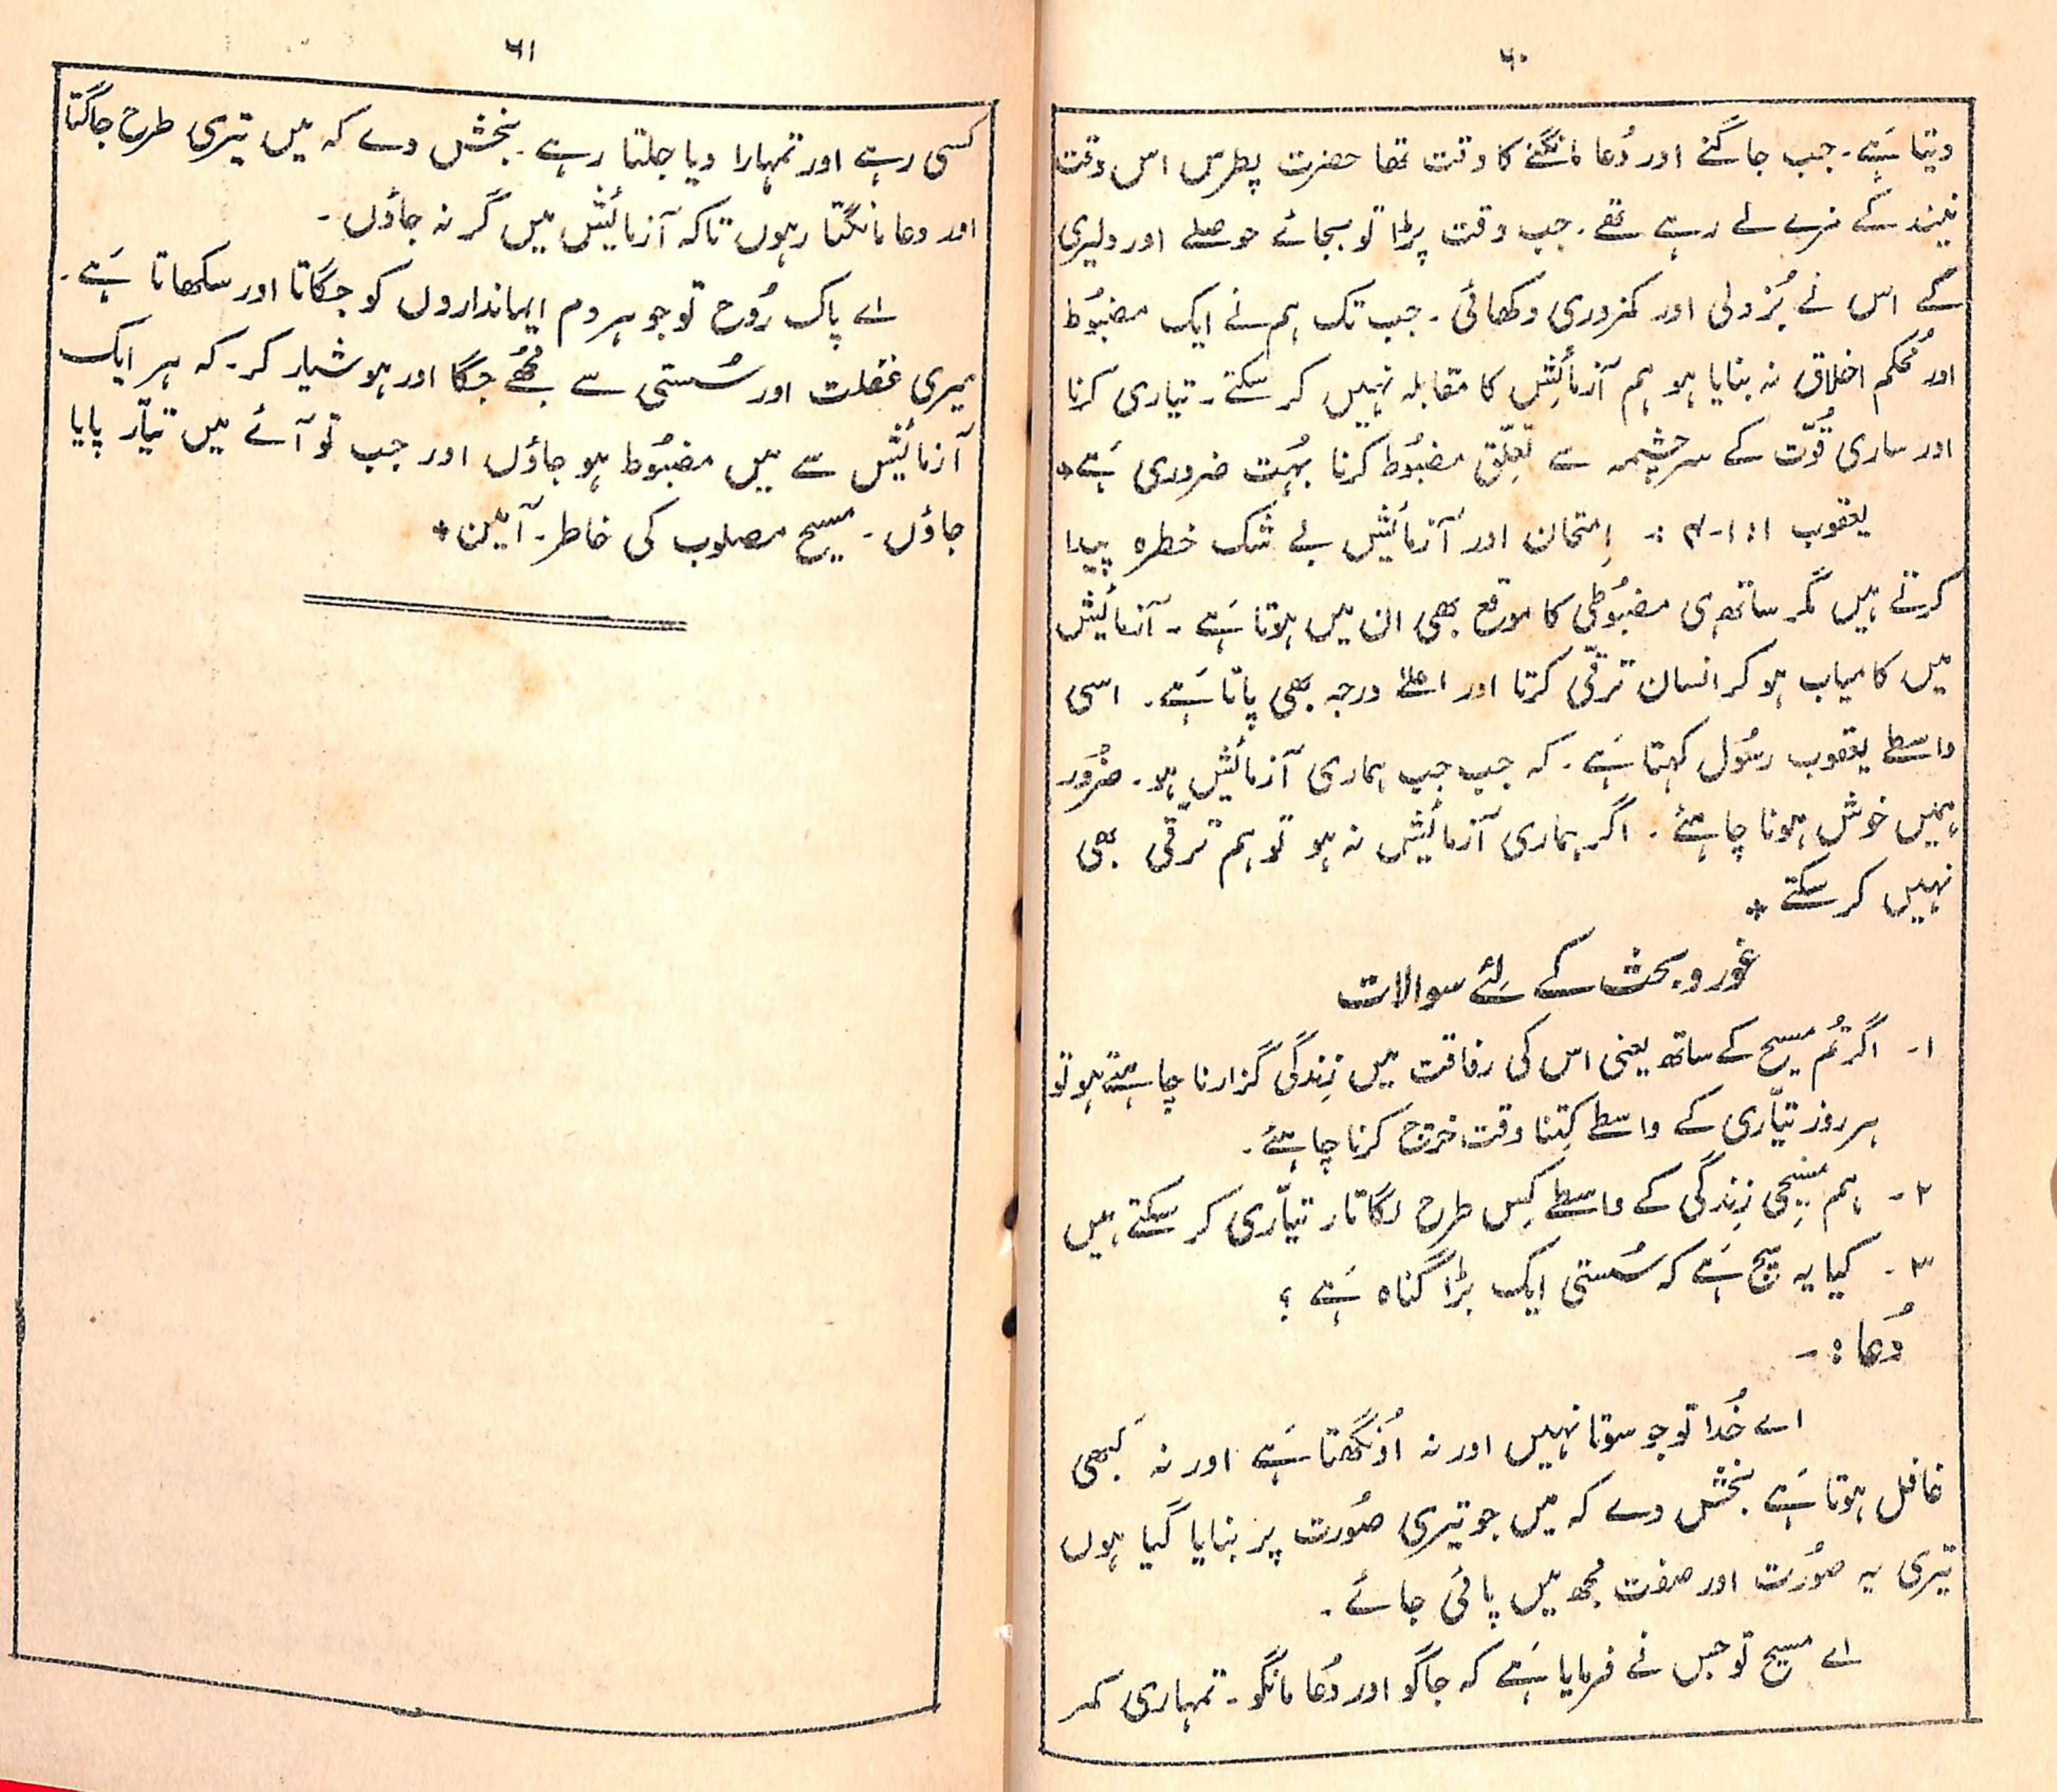 ۶۰
دیتا ہَے۔ جب جاگنے اور دُعا مانگنے کا وقت تھا حضرت پطرس اس وقت
نیند کے مزے لے رہے تھے۔ جب وقت پڑا تو بجائے حوصلے اور دلیری
کے اس نے بُزدلی اور کمزوری دکھائی۔ جب تک ہم نے ایک مضبُوط
اور مُحکم اخلاق نہ بنایا ہو ہم آزمائشِ کا مقابلہ نہیں کر سکتے۔ تیاری کرنا
اور ساری قُوّت کے سرچشمہ سے تعلّق مضبُوط کرنا بہُت ضروری ہَے٭
یعقوب ۱:۱-۴ :- اِمتحان اور آزمائیش بے شک خطرہ پیدا
کرتے ہیں مگر ساتھ ہی مضبُوطی کا موقع بھی ان میں ہوتا ہَے۔ آزمائیش
میں کامیاب ہو کر انسان ترقّی کرتا اور اعلےٰ درجہ بھی پاتا ہَے۔ اسی
واسطے یعقوب رسُول کہتا ہَے۔ کہ جب جب ہماری آزمائیش ہو۔ ضرُور
ہمیں خوش ہونا چاہئے۔ اگر ہماری آزمائیش نہ ہو تو ہم ترقی بھی
نہیں کر سکتے ٭
غور و بحث کے لئے سوالات
۱۔ اگر تُم مسیح کے ساتھ یعنی اس کی رفاقت میں زِندگی گزارنا چاہتے ہو تو
ہر روز تیّاری کے واسطے کِتنا وقت خرچ کرنا چاہئے۔
۲۔ ہم مسِیحی زِندگی کے واسطے کِس طرح لگاتار تیّاری کر سکتے ہیں
۳۔ کیا یہ سچ ہَے کہ سُستی ایک بڑا گناہ ہَے ؟
دُعا :-
اے خُدا تو جو سوتا نہیں اور نہ اُونگھتا ہَے اور نہ کَبھی
غافل ہوتا ہَے بخش دے کہ میں جو تیری صُورت پر بنایا گیا ہوں
تیری یہ صُورت اور صفت مجُھ میں پائی جائے۔
اے مسیح تو جس نے فرمایا ہَے کہ جاگو اور دُعا مانگو۔ تمہاری کمر
۶۱
کسی رہے اور تمہارا دیا جلتا رہے۔ بخش دے کہ میں تیری طرح جاگتا
اور دعا مانگتا رہوں تاکہ آزمائیش میں گر نہ جاؤں۔
اے پاک رُوح تو جو ہر دم ایمانداروں کو جگاتا اور سکھاتا ہَے۔
میری غفلت اور سُستی سے مُجھے جگا اور ہوشیار کر۔ کہ ہر ایک
آزمائیش سے میں مضبُوط ہو جاؤں اور جب تو آئے میں تیّار پایا
جاؤں۔ مسیح مصلوب کی خاطر۔ آمین٭